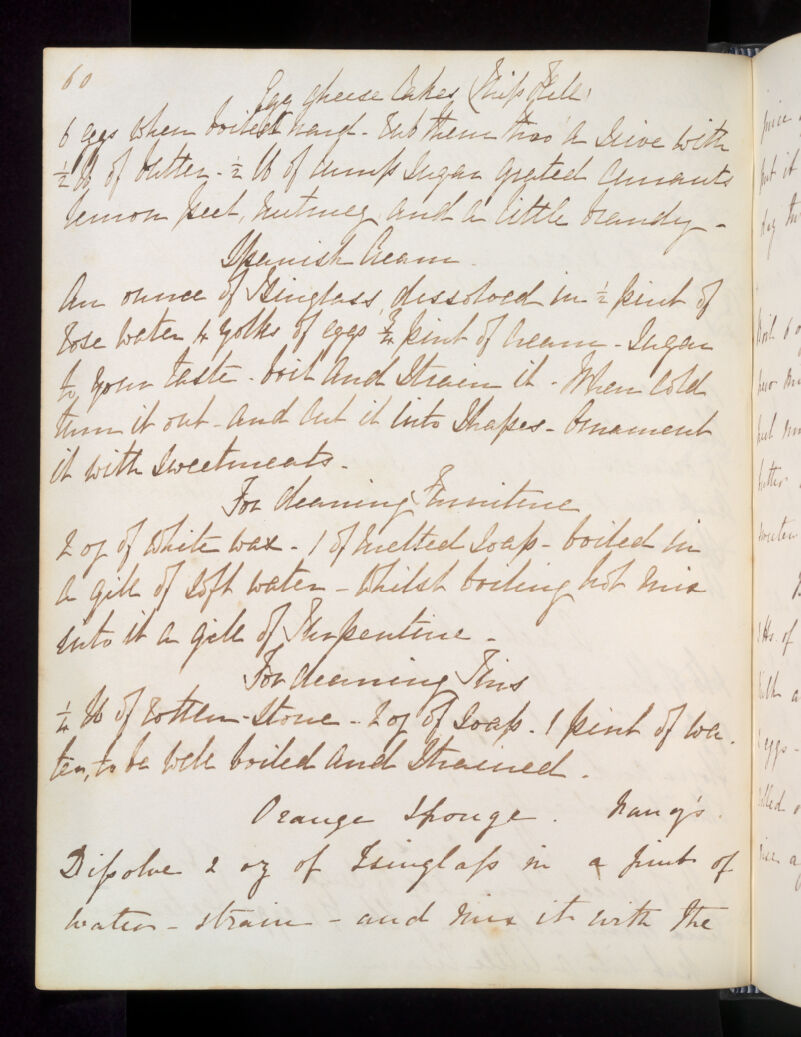 60
Egg Cheese Cakes (Miss Hill)
6 eggs when boiled hard - Rub them thro' a Sieve with
½ lb of butter - ½ lb of lump Sugar grated Currants
lemon peel, Nutmeg, and a little brandy -
Spanish Cream -
An ounce of Isinglass, dissolved in ½ pint of
Rose Water 4 yolks of eggs ¾ pint of Cream - Sugar
to your taste - boil and Strain it - When Cold
turn it out - and Cut it into Shapes - Ornament
it with Sweetmeats -
For Cleaning Furniture
2 oz of White wax - 1 of melted Soap - boiled in
a gill of Soft water - Whilst boiling hot mix
into it a gill of Turpentine -
For Cleaning Tins
¼ lb of Rotten-Stone - 2 oz of Soap - 1 pint of wa -
ter, to be well boiled and Strained .
Orange Sponge . Nancy's .
Dissolve 2 oz of Isinglass in a pint of
water - strain - and mix it with the
juice
put it
day
Boil 6
butter
lbs of
eggs -